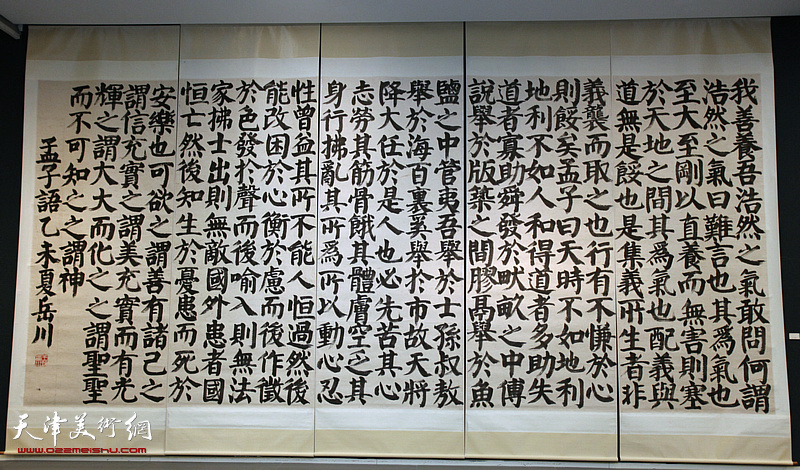 我善養吾浩然之氣敢問何謂
浩然之氣曰難言也其爲氣也
至大至剛以直養而無害則塞
於天地之間其爲氣也配義與
道無是餒也是集義所生者非
義襲而取之也行有不慊於心
則餒矣孟子曰天時不如地利
地利不如人和得道者多助失
道者寡助舜發於畎畝之中傅
說舉於版築之間膠鬲舉於魚
鹽之中管夷吾舉於士孫叔敖
舉於海百裏奚舉於市故天將
降大任於是人也必先苦其心
志勞其筋骨餓其體膚空乏其
身行拂亂其所爲所以動心忍
性曾益其所不能人恒過然後
能改困於心衡於慮而後作徵
於色發於聲而後喻入則無法
家拂士出則無敵國外患者國
恒亡然後知生於憂患而死於
安樂也可欲之謂善有諸己之
謂信充實之謂美充實而有光
輝之謂大大而化之之謂聖聖
而不可知之之謂神
孟子語乙未夏岳川
天津美術網
www.022meishu.com